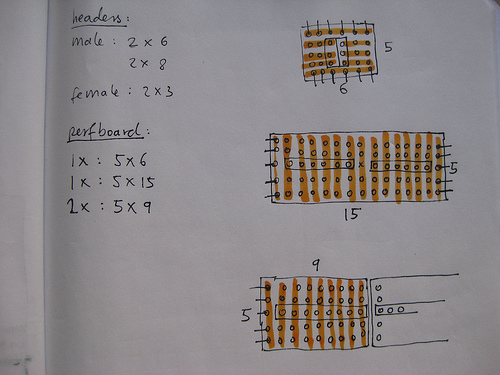 headers:
male : 2 x 6
2 x 8
female : 2 x 3
perfboard :
1x : 5 x 6
1x : 5 x 15
2x : 5 x 9
5
6
5
15
9
5